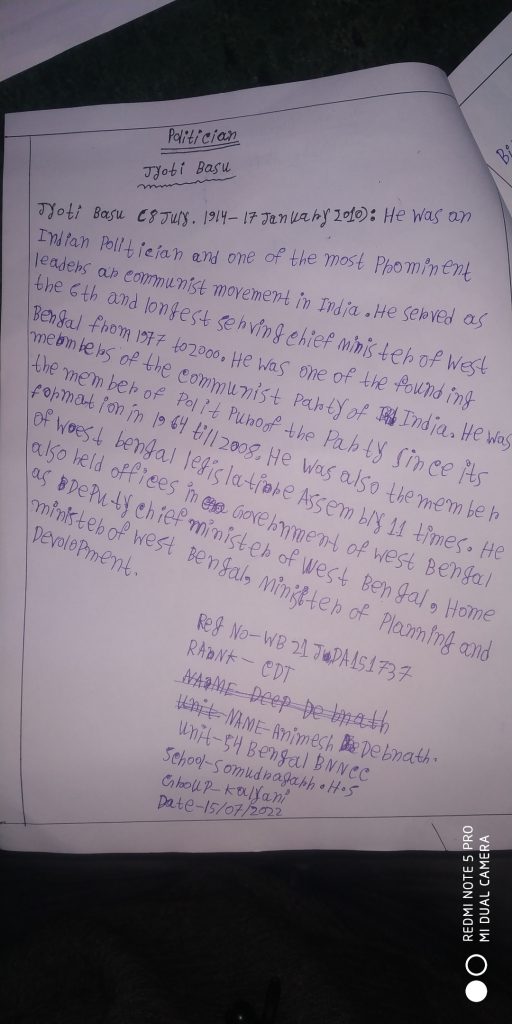 Politician
Jyoti Basu
Jyoti Basu (8 July. 1914 - 17 January 2010): He was an
Indian Politician and one of the most Prominent
leaders an communist movement in India. He served as
the 6th and longest serving chief minister of West
Bengal from 1977 to 2000. He was one of the founding
members of the communist Party of India. He was
the member of Polit Puro of the Party since its
formation in 1964 till 2008. He was also the member
of west bengal legislative Assembly 11 times. He
also held offices in Government of west Bengal
as Deputy chief minister of West Bengal, Home
minister of west Bengal, Minister of Planning and
Devolopment.
Reg No - WB 21 JDA151737
RANK - CDT
NAME Deep Debnath
Unit - NAME - Animesh Debnath.
Unit - 54 Bengal BN NCC
School - Somudragarh. H.S
Group - Kalyani
Date - 15/07/2022
Bi
REDMI NOTE 5 PRO
MI DUAL CAMERA